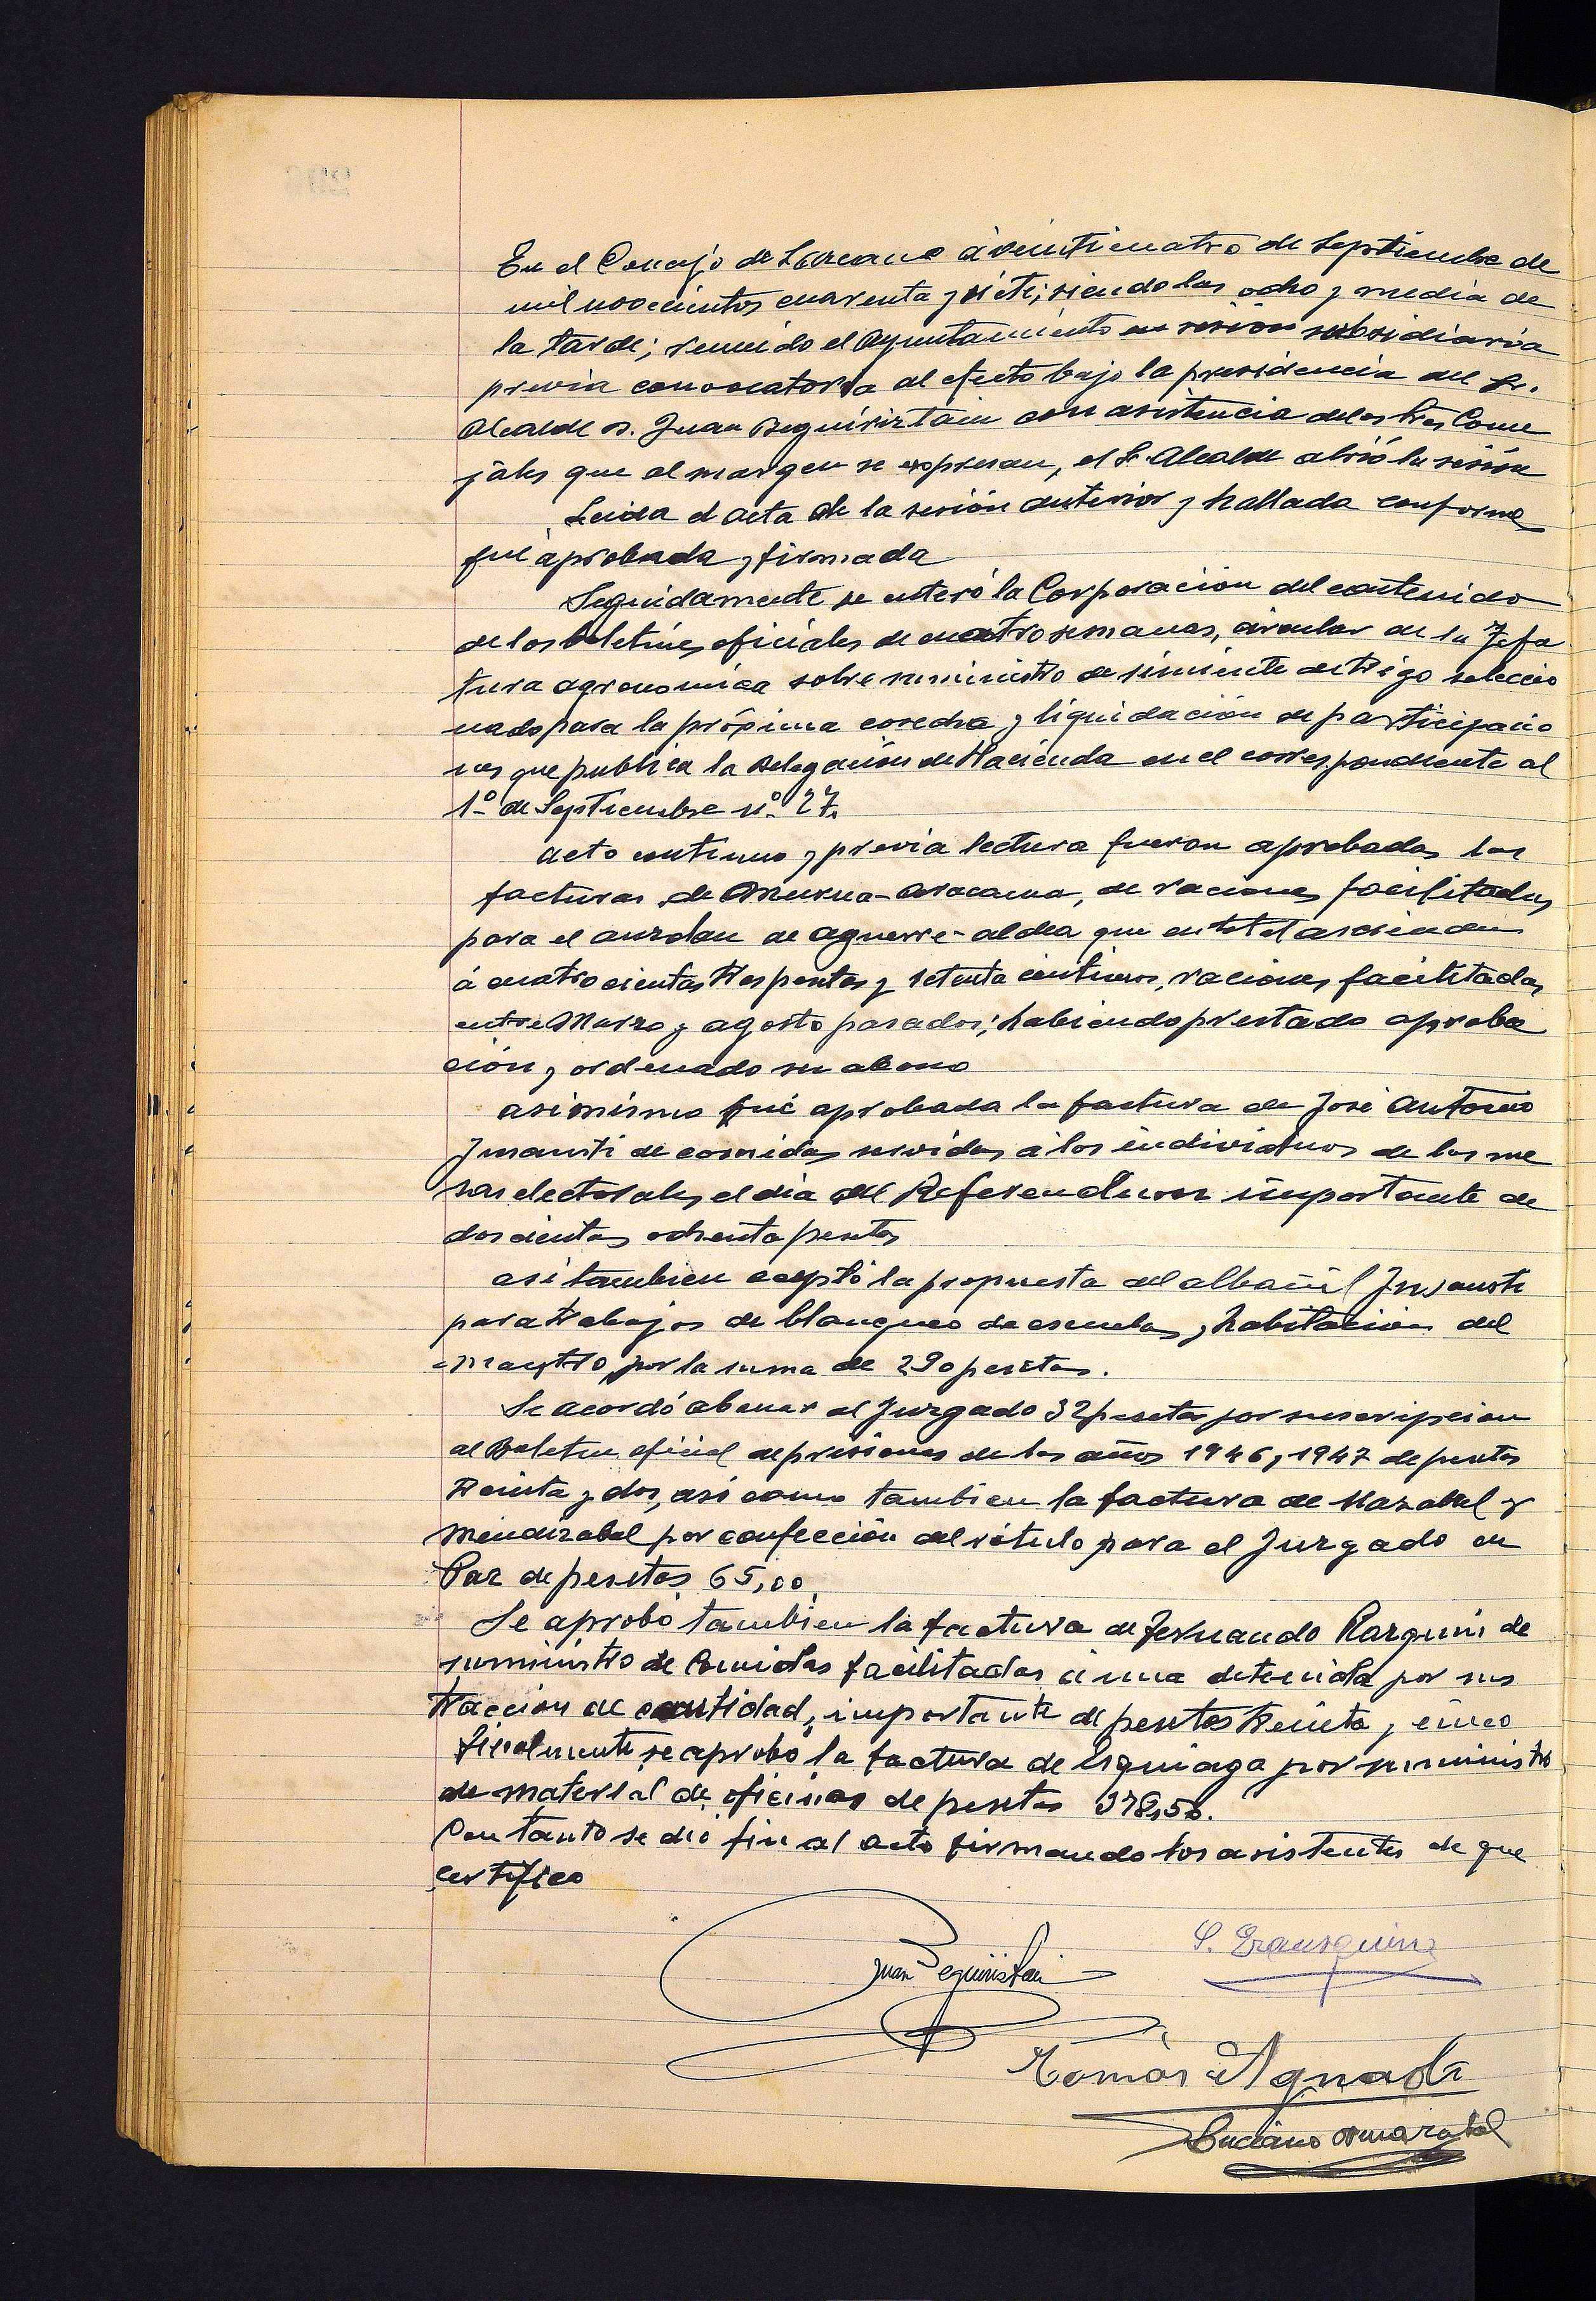 En el Concejo de Lazcano á veinticuatro de Septiembre de
mil novecientos cuarenta y siete; siendo las ocho y media de
la tarde; reunido el Ayuntamiento en sesión subsidiaria
previa convocatoria al efecto bajo la presidencia del Sr.
Alcalde D. Juan Beguiristain con asistencia de los Sres Conce
jales que al margen se expresan, el Sr. Alcalde abrió la sesión
Leida el acta de la sesión anterior y hallada conforme
fué aprobada y firmada
Seguidamente se enteró la Corporación del contenido
de los boletines oficiales de cuatro semanas, circular de la Jefa
tura agronomica sobre suministro de simiente de trigo seleccio
nado para la próxima cosecha y liquidación de participacio
nes que publica la Delegación de Hacienda en el correspondiente al
1º de Septiembre nº 27.
Acto continuo y previa lectura fueron aprobadas las
facturas de aracama, de raciones facilitadas
para el auzolan de aguerre-aldea que en total ascienden
á cuatrocientas tres pesetas y setenta centimos, raciones facilitadas
entre Marzo y agosto pasados; habiendo prestado aproba
ción y ordenado su abono
asimismo fué aprobada la factura de José Antonio
Insausti de comidas servidas á los individuos de las me
sas electorales el dia del Referendum importante de
doscientas ochenta pesetas
asi tambien aceptó la propuesta del albañil Insausti
para trabajos de blanqueo de escuelas y habitacion del
maestro, por la suma de 290 pesetas.
Se acordó abonar al Juzgado 32 pesetas por suscripcion
al Boletin oficial de prisiones de los años 1946 y 1947 de pesetas
treinta y dos, asi como tambien la factura de y
Mendizabal por confección del rótulo para el Juzgado de
Paz de pesetas 65,00.
Se aprobó tambien la factura de Fernando de
suministro de comidas facilitadas á una detenida por sus
tracción de cantidad, importante de pesetas treinta y cinco
Finalmente se aprobó la factura de por suministro
de material de oficinas de pesetas 378,50.
Con tanto se dió fin al acto firmando los asistentes de que
certifico
Juan Beguiristain
Tomás
Luciano